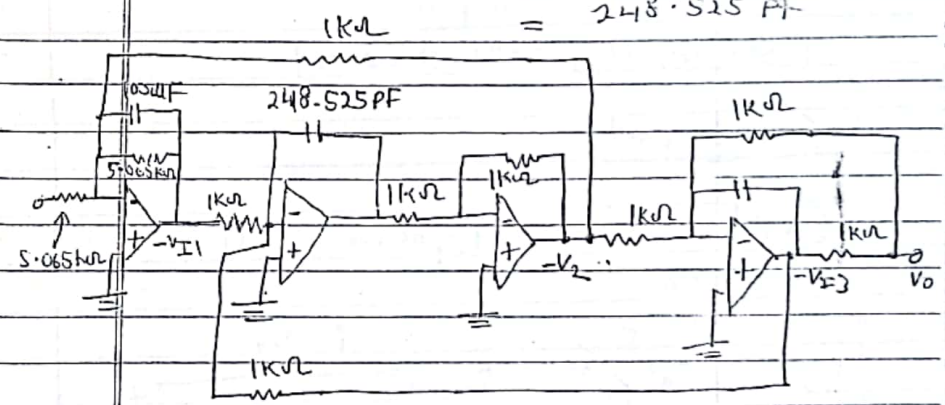 = 248.525 PF
1KΩ
248-525PF
1KΩ
5.065kΩ
1KΩ
1KΩ
1KΩ
1KΩ
-
+
-
+
-
+
-
+
5.065kΩ
-VI1
-V2
1KΩ
-VI=3
V0
1KΩ